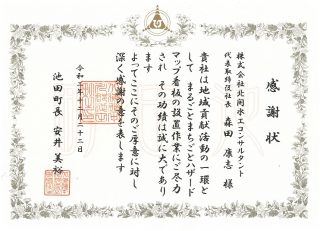 感謝状
株式会社北関水工コンサルタント
代表取締役社長 森田 康志 様
貴社は地域貢献活動の一環と
して まるごとまちごとハザード
マップ看板の設置作業にご尽力
され その功績は誠に大であり
ます
よってここにそのご厚意に対し
深く感謝の意を表します
令和 年十月二十二日
池田町長 安井 美裕